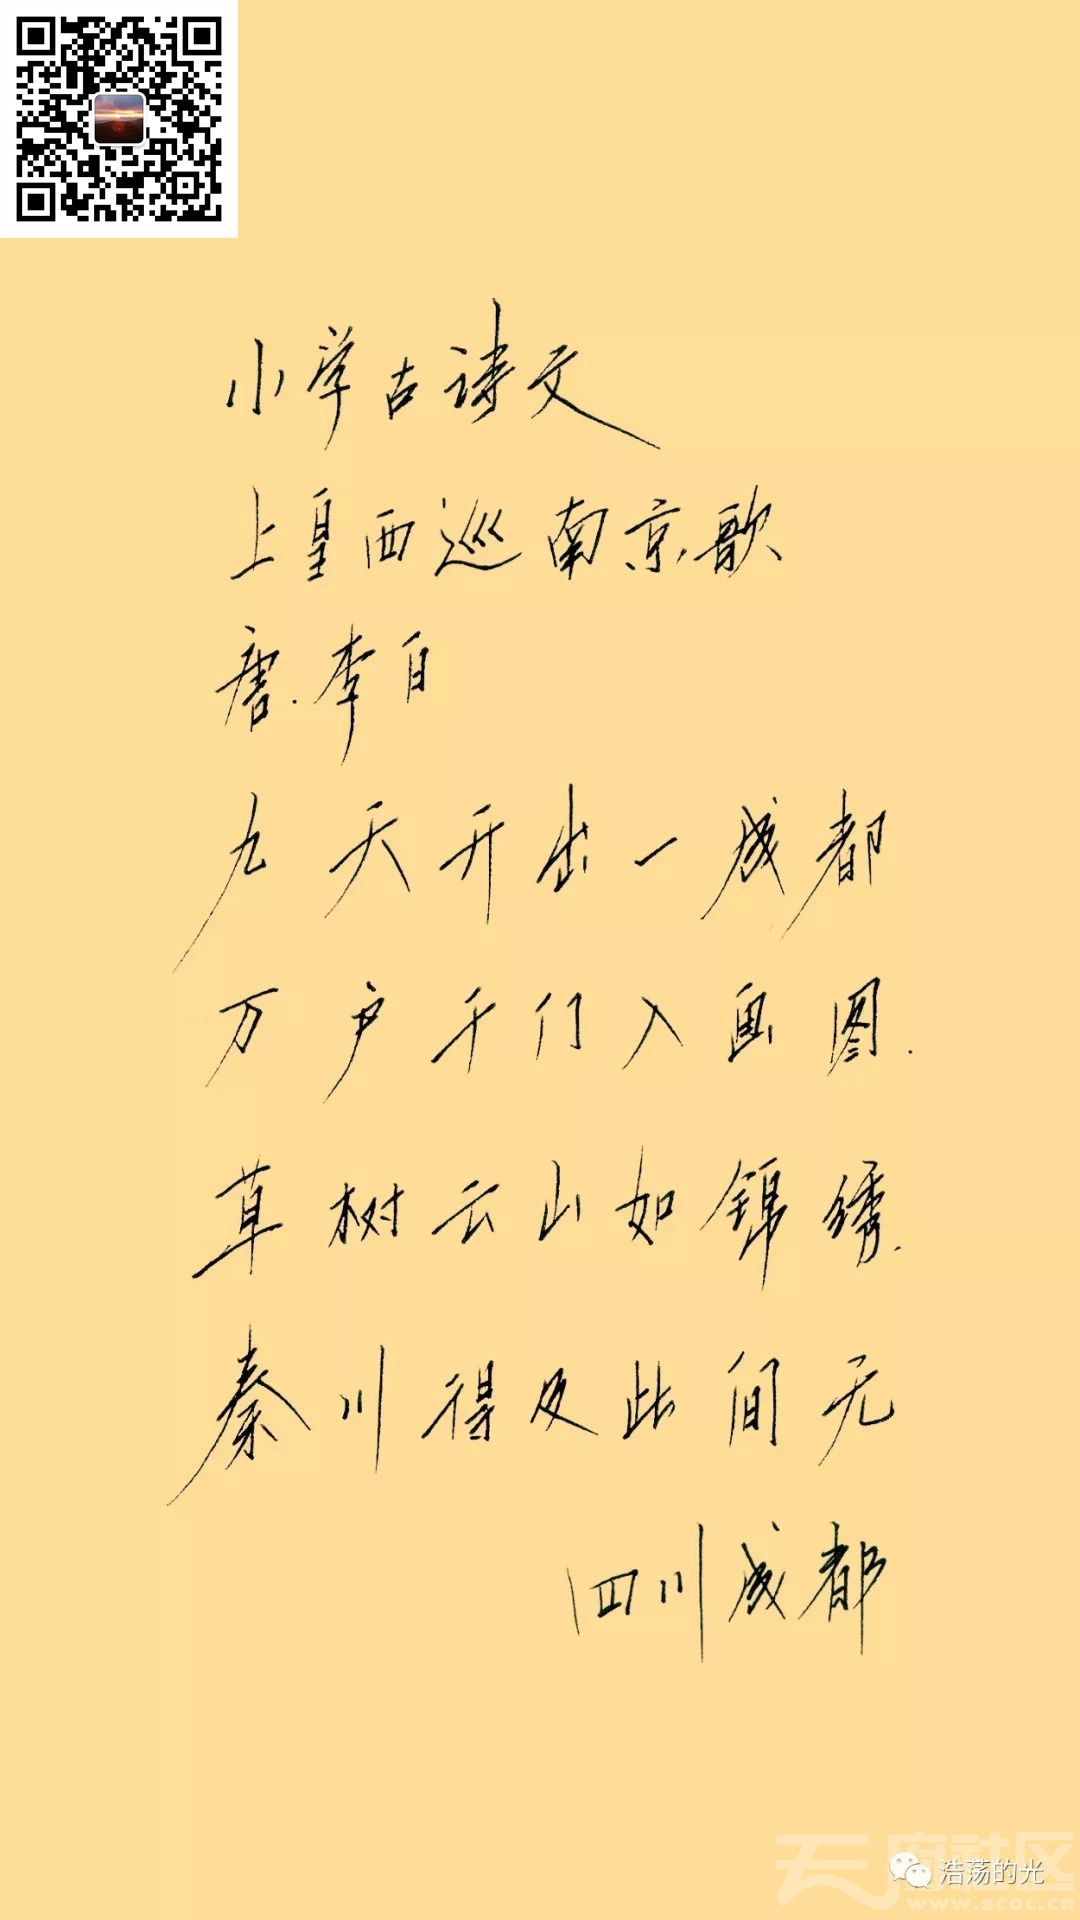 小学古诗文
上皇西巡南京歌
唐.李白
九天开出一成都
万户千门入画图.
草树云山如锦绣.
秦川得及此间无
四川成都
天府社区
浩荡的光
www.scol.cn